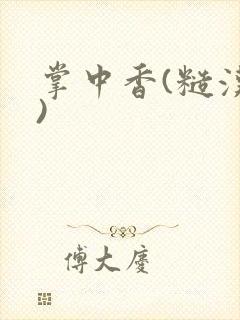 掌中香(糙汉
)
傅大慶